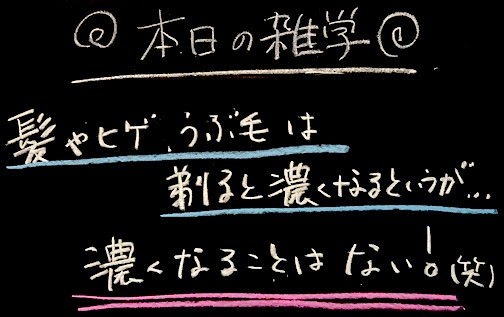 本日の雑学
髪やヒゲ、うぶ毛は
剃ると濃くなるというが...
濃くなることはない!(笑)